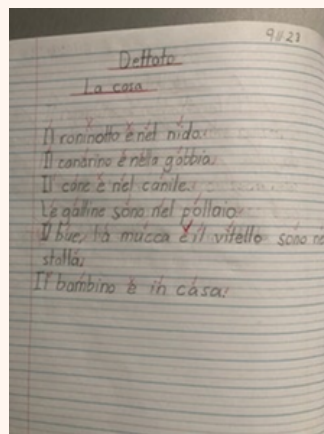 9/23
Dettato
La casa
Il roninotto è nel nido.
Il canarino è nella gabbia.
Il cane è nel canile.
Le galline sono nel pollaio.
Il bue, la mucca e il vitello sono ne
stalla.
Il bambino è in casa.